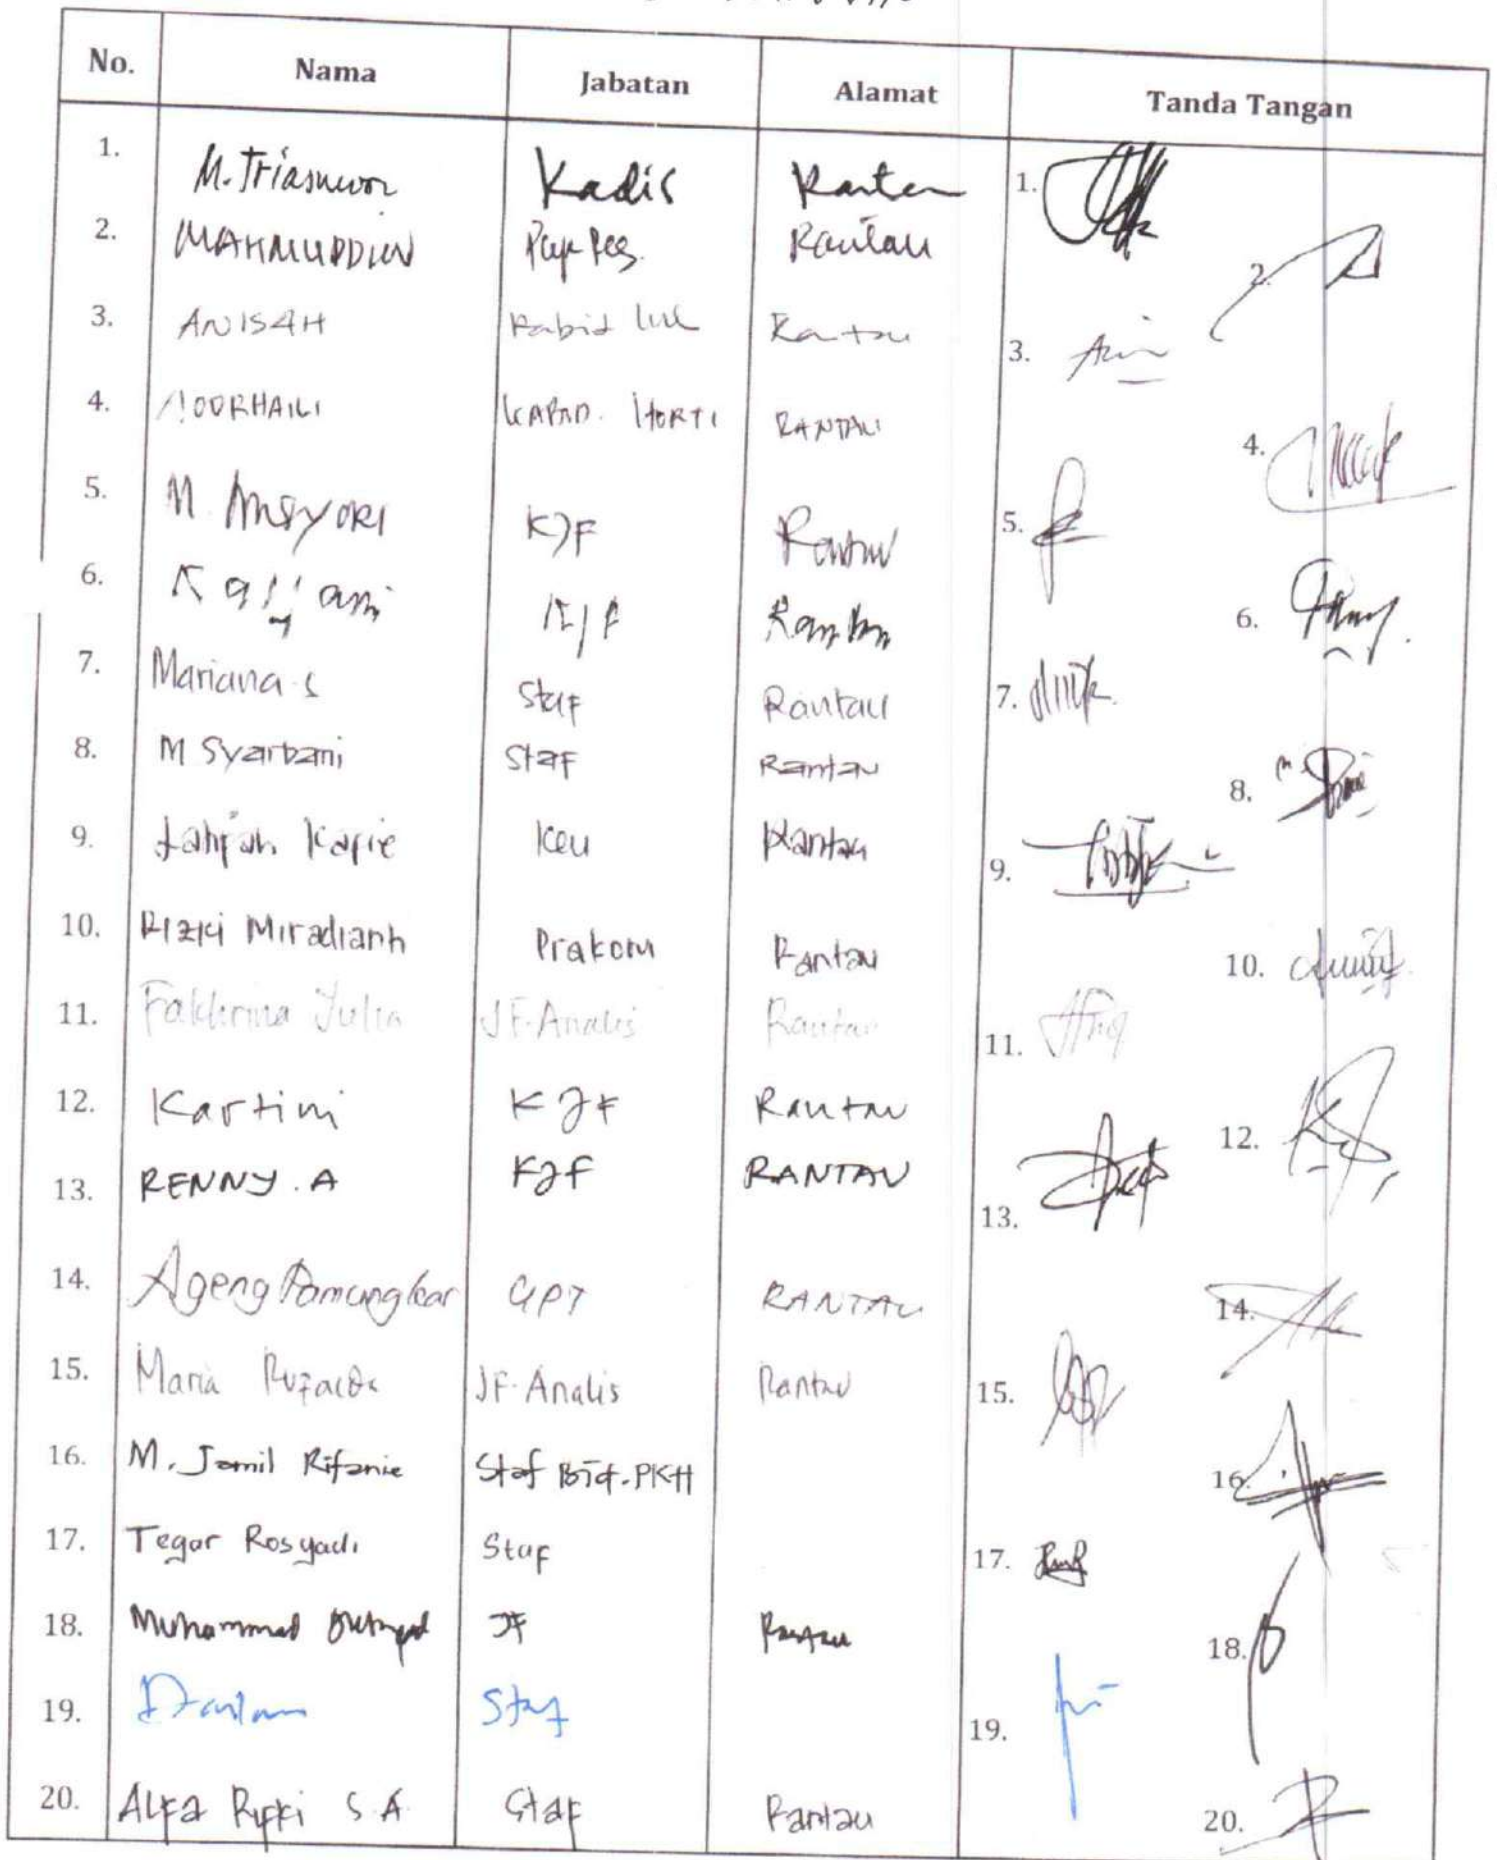 No. Nama Jabatan Alamat Tanda Tangan
1. Kadis 1.
2. MAHMUDDIN Rantau 2.
3. ANISAH Kabid Rantau 3.
4. NOORHAILI KABID. HORTI RANTAU 4.
5. M. Ansyori KJF Rantau 5.
6. KJF Rantau 6.
7. Mariana S Staf Rantau 7.
8. M Syarbani Staf Rantau 8.
9. Keu Rantau 9.
10. Rizki Prakom Rantau 10.
11. Yulia JF. Analis Rantau 11.
12. Kartini KJF Rantau 12.
13. RENNY. A KJF RANTAU 13.
14. Ageng Pamungkas RANTAU 14.
15. Maria JF. Analis Rantau 15.
16. M. Jamil Rifanie Staf Bid. PKH 16.
17. Tegar Rosyadi Staf 17.
18. Muhammad JF Rantau 18.
19. Staf 19.
20. Alfa Rifki S.A Staf Rantau 20.